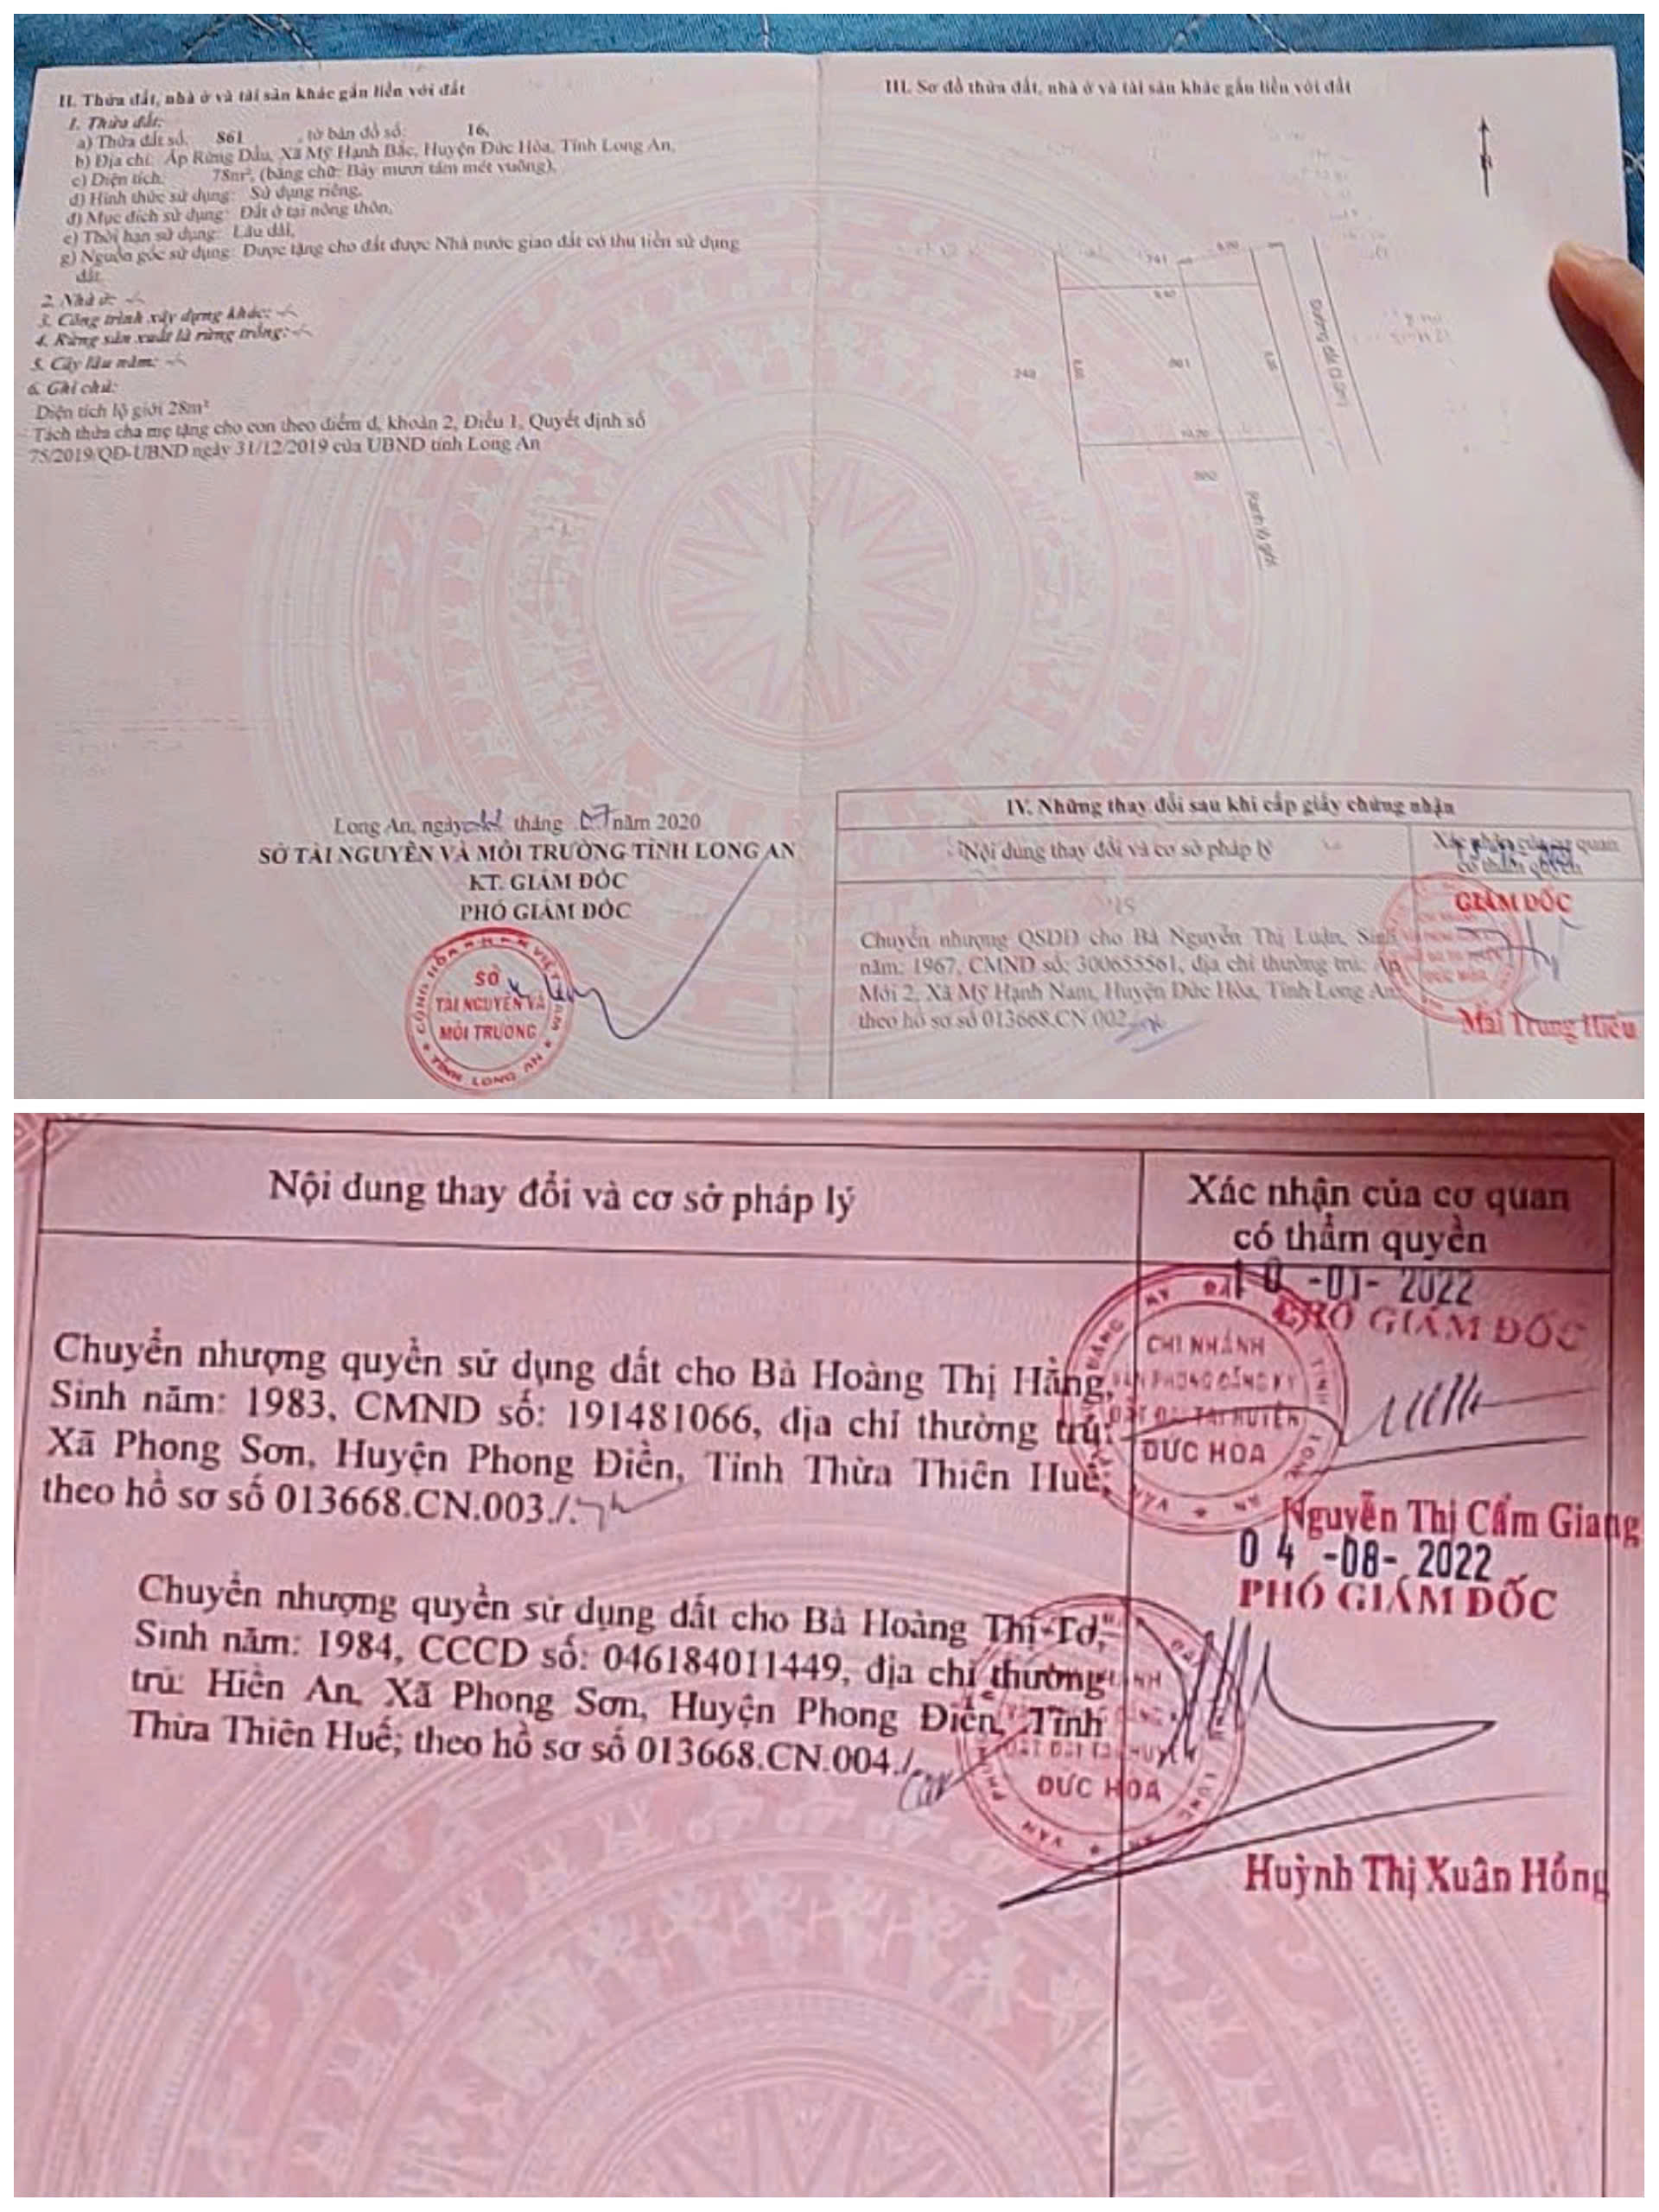 II. Thửa đất, nhà ở và tài sản khác gắn liền với đất
1. Thửa đất:
a) Thửa đất số: 861, tờ bản đồ số: 16,
b) Địa chỉ: Ấp Rừng Dầu, Xã Mỹ Hạnh Bắc, Huyện Đức Hòa, Tỉnh Long An,
c) Diện tích: 78m², (bằng chữ: Bảy mươi tám mét vuông),
d) Hình thức sử dụng: Sử dụng riêng,
đ) Mục đích sử dụng: Đất ở tại nông thôn,
e) Thời hạn sử dụng: Lâu dài,
g) Nguồn gốc sử dụng: Được tặng cho đất được Nhà nước giao đất có thu tiền sử dụng
đất.
2. Nhà ở: -/-
3. Công trình xây dựng khác: -/-
4. Rừng sản xuất là rừng trồng: -/-
5. Cây lâu năm: -/-
6. Ghi chú:
Diện tích lộ giới 28m²
- Tách thửa cha mẹ tặng cho con theo điểm d, khoản 2, Điều 1, Quyết định số
75/2019/QĐ-UBND ngày 31/12/2019 của UBND tỉnh Long An
Long An, ngày tháng 07 năm 2020
SỞ TÀI NGUYÊN VÀ MÔI TRƯỜNG TỈNH LONG AN
KT. GIÁM ĐỐC
PHÓ GIÁM ĐỐC
SỞ
TÀI NGUYÊN VÀ
MÔI TRƯỜNG
TỈNH LONG AN
III. Sơ đồ thửa đất, nhà ở và tài sản khác gắn liền với đất
741
861
Đường đất
Ranh lộ giới
IV. Những thay đổi sau khi cấp giấy chứng nhận
Nội dung thay đổi và cơ sở pháp lý
Xác nhận của cơ quan
có thẩm quyền
Chuyển nhượng QSDĐ cho Bà Nguyễn Thị Luận, Sinh
năm: 1967, CMND số: 300655561, địa chỉ thường trú: Ấp
Mới 2, Xã Mỹ Hạnh Nam, Huyện Đức Hòa, Tỉnh Long An;
theo hồ sơ số 013668.CN.002
GIÁM ĐỐC
Mai Trung Hiếu
Nội dung thay đổi và cơ sở pháp lý
Xác nhận của cơ quan
có thẩm quyền
10 -01- 2022
PHÓ GIÁM ĐỐC
Chuyển nhượng quyền sử dụng đất cho Bà Hoàng Thị Hằng,
Sinh năm: 1983, CMND số: 191481066, địa chỉ thường trú:
Xã Phong Sơn, Huyện Phong Điền, Tỉnh Thừa Thiên Huế;
theo hồ sơ số 013668.CN.003./.
CHI NHÁNH
VĂN PHÒNG ĐĂNG KÝ
ĐẤT ĐAI TẠI HUYỆN
ĐỨC HÒA
Nguyễn Thị Cẩm Giang
04 -08- 2022
PHÓ GIÁM ĐỐC
Chuyển nhượng quyền sử dụng đất cho Bà Hoàng Thị Tơ,
Sinh năm: 1984, CCCD số: 046184011449, địa chỉ thường
trú: Hiền An, Xã Phong Sơn, Huyện Phong Điền, Tỉnh
Thừa Thiên Huế; theo hồ sơ số 013668.CN.004./.
ĐỨC HÒA
Huỳnh Thị Xuân Hồng